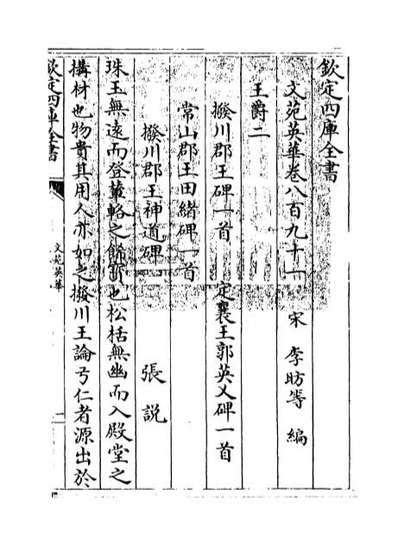 欽定四庫全書
文苑英華卷八百九十一
宋 李昉等 編
王爵二
撥川郡王碑一首 定襄王郭英乂碑一首
常山郡王田緒碑一首
撥川郡王神道碑 張説
珠玉無遠而登輦輅之飾也松栝無幽而入殿堂之
搆材也物貴其用人亦如之撥川王論弓仁者源出於
欽定四庫全書
文苑英華